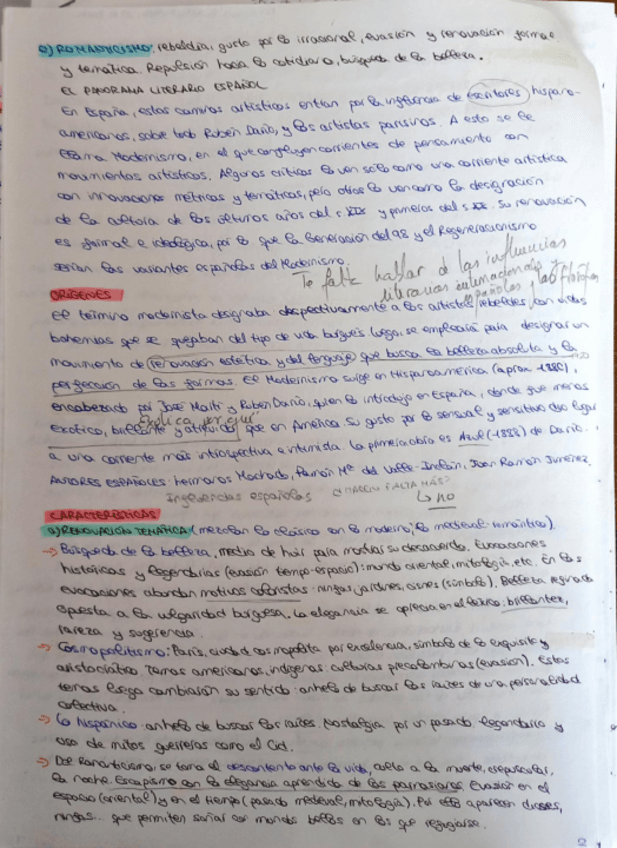 c) ROMANTICISMO: rebeldía, gusto por lo irracional, evasión y renovación formal
y temática. Repulsión hacia lo cotidiano, búsqueda de la belleza.
EL PANORAMA LITERARIO ESPAÑOL
En España, estos cambios artísticos entran por la influencia de escritores hispano-
americanos, sobre todo Rubén Darío, y los artistas parisinos. A esto se le
llama Modernismo, en el que confluyen corrientes de pensamiento con
movimientos artísticos. Algunos críticos lo ven sólo como una corriente artística
con innovaciones métricas y temáticas, pero otros lo ven como la designación
de la cultura de los últimos años del s. XIX y primeros del s. XX. Su renovación
es formal e ideológica, por lo que la Generación del 98 y el Regeneracionismo
serían las variantes españolas del Modernismo.
Te falta hablar de las influencias
literarias internacionales
españolas y las filosóficas
ORÍGENES
El término modernista designaba despectivamente a los artistas rebeldes, con vidas
bohemias que se quejaban del tipo de vida burgués. Luego, se emplearía para designar un
movimiento de renovación estética y del lenguaje que busca la belleza absoluta y la
perfección de las formas. El Modernismo surge en Hispanoamérica (aprox. 1880),
encabezado por José Martí y Rubén Darío, quien lo introdujo en España, donde fue menos
Explica por qué
exótico, brillante y atrevido que en América. Su gusto por lo sensual y sensitivo dio lugar
a una corriente más introspectiva e intimista. La primera obra es Azul (1888) de Darío.
AUTORES ESPAÑOLES: hermanos Machado, Ramón Mª del Valle-Inclán, Juan Ramón Jiménez.
Influencias españolas ¿HACEN FALTA MÁS?
↳ no
CARACTERÍSTICAS
a) RENOVACIÓN TEMÁTICA (mezclan lo clásico con lo moderno; lo medieval-romántico)
→ Búsqueda de la belleza, medio de huir para mostrar su desacuerdo. Evocaciones
históricas y legendarias (evasión tiempo-espacio): mundo oriental, mitología, etc. En las
evocaciones abundan motivos coloristas: ninfas, jardines, cisnes (símbolo). Belleza refinada
opuesta a la vulgaridad burguesa. La elegancia se aprecia en el léxico: brillantez,
rareza y sugerencia.
→ Cosmopolitismo: París, ciudad cosmopolita por excelencia, símbolo de lo exquisito y
aristocrático. Temas americanos, indígenas: culturas precolombinas (evasión). Estos
temas luego cambiarán su sentido: anhelo de buscar las raíces de una personalidad
colectiva.
→ Lo hispánico: anhelo de buscar las raíces. Nostalgia por un pasado legendario y
uso de mitos guerreros como el Cid.
→ Del Romanticismo, se toma el descontento ante la vida, culto a la muerte, crepuscular,
la noche. Escapismo con la elegancia aprendida de los parnasianos. Evasión en el
espacio (oriental) y en el tiempo (pasado medieval, mitología). Por ello aparecen dioses,
ninfas... que permiten soñar con mundos bellos en los que refugiarse.